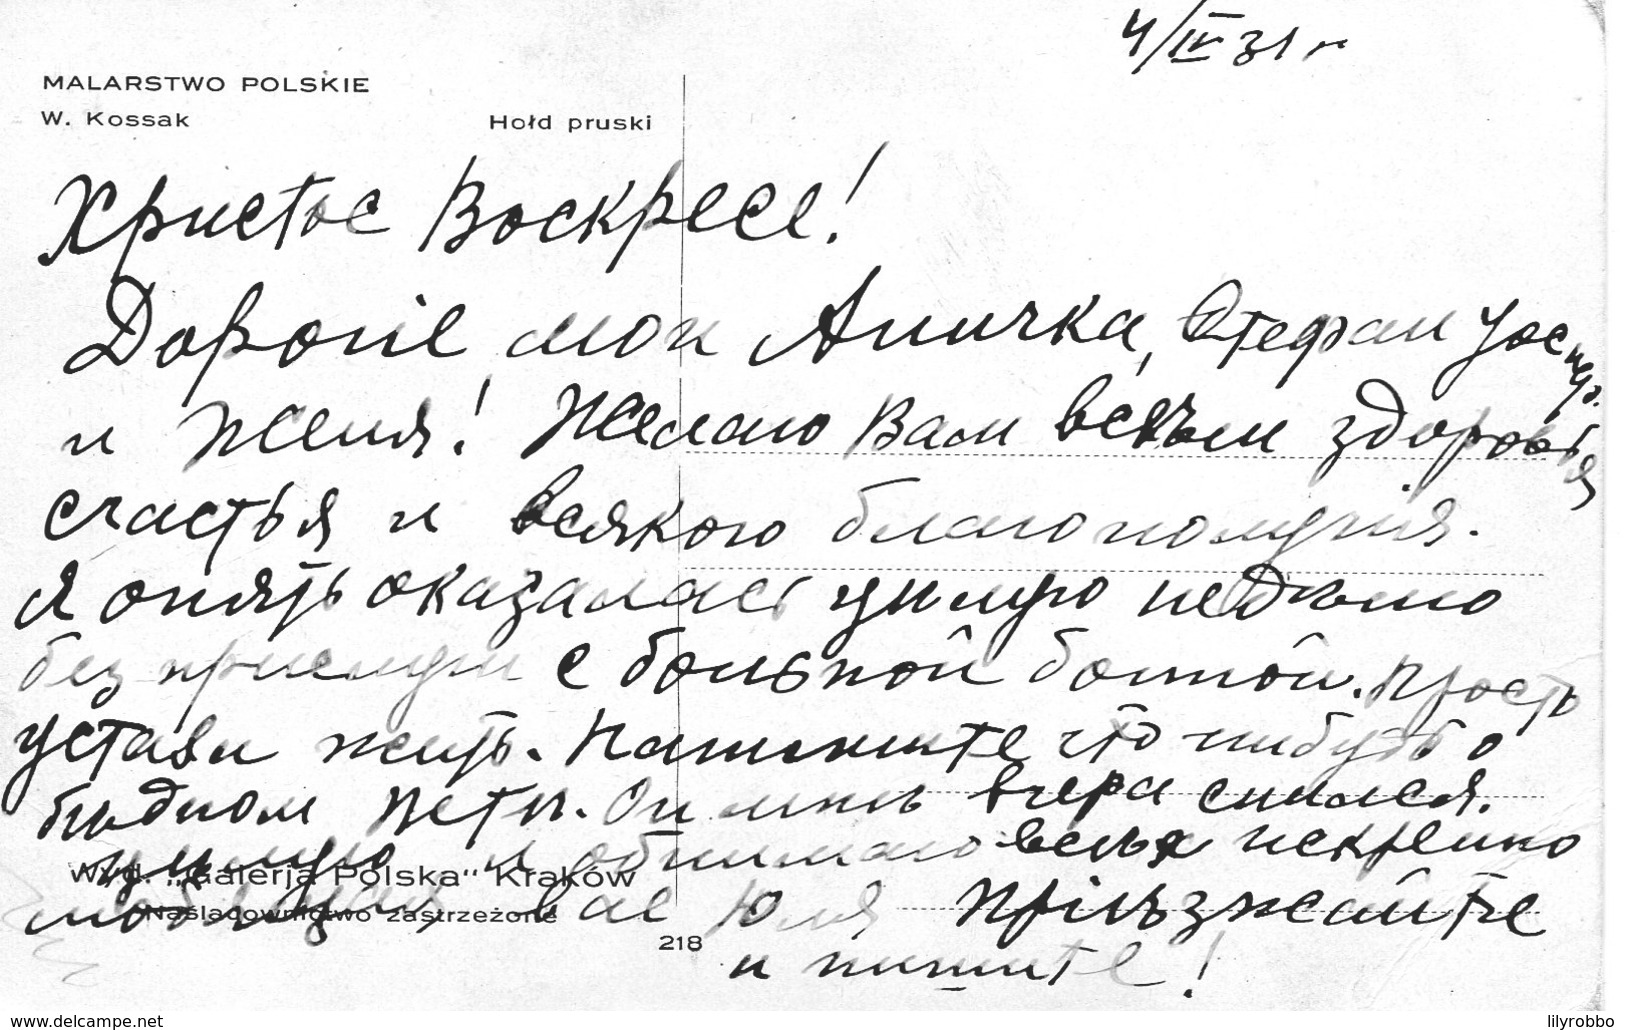 4/IV 31 г
MALARSTWO POLSKIE
W. Kossak
Hołd pruski
Христос Воскресе!
Дорогіе мои Аничка, Стефан Иосиф.
и Женя! Желаю Вам всѣм здоровья
счастья и всякого благополучія.
Я опять оказалась цилую недѣлю
без прислуги с больной бонной. Прость
устала жить. Напишите что нибудь о
бѣдном Пети. Он мнѣ вчера снился.
цилую и обнимаю всѣх искренно
вас Юля Пріѣзжайте
и пишите!
Wyd. „Galerja Polska“ Kraków
Naśladownictwo zastrzeżone
218
www.delcampe.net
lilyrobbo